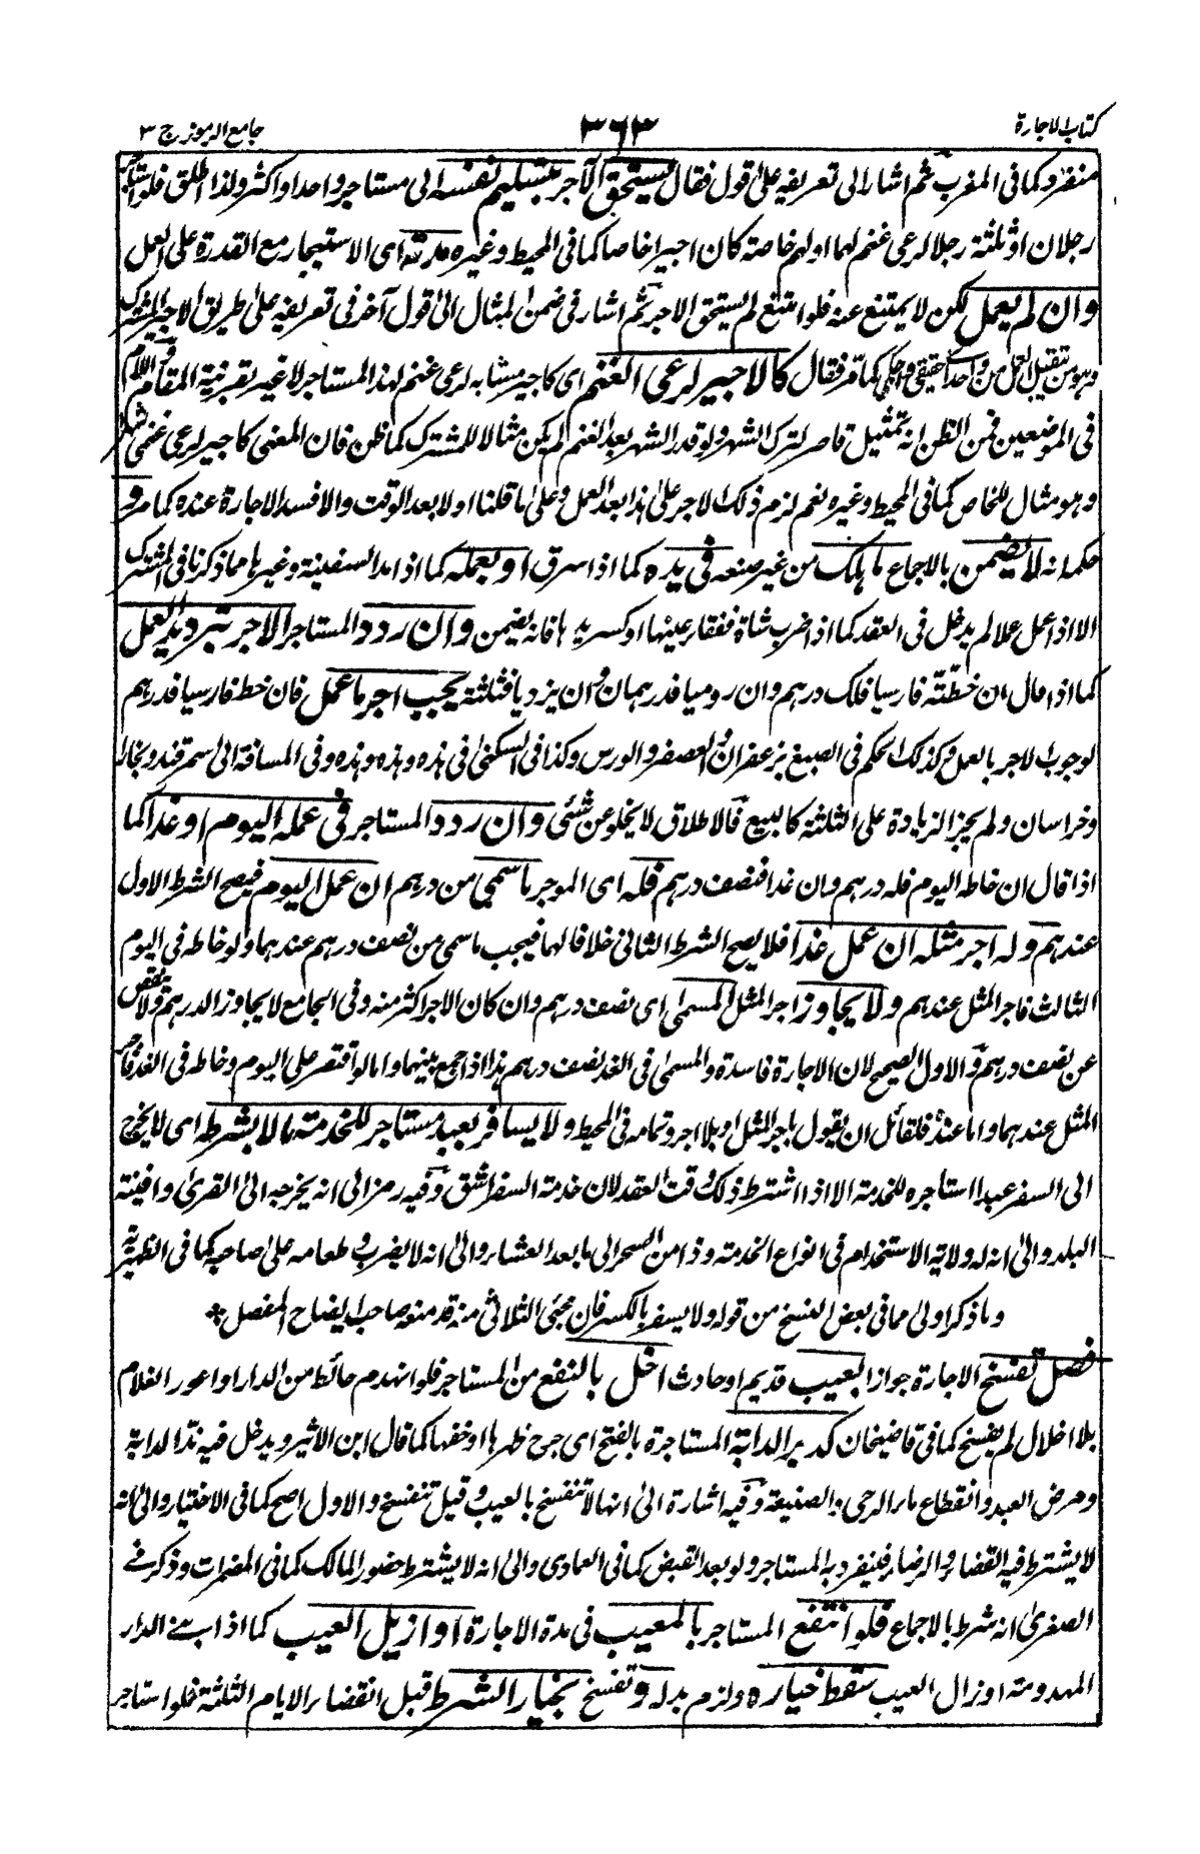 كتاب الاجارة
٣٦٣
جامع الرموز ج ٣
منفرد كما فى المغرب ثم اشار الى تعريفه على قول فقال يستحق الاجر بتسليم نفسه الى مستاجر واحد او اكثر ولذا اطلق فلو استاجر
رجلان او ثلثة رجلا لرعى غنم لهما او لهم خاصة كان اجيرا خاصا كما فى المحيط وغيره مدته اى الاستيجار مع القدرة على العمل
وان لم يعمل لكن لا يمتنع عنه فلو امتنع لم يستحق الاجر ثم اشار فى ضمن المثال الى قول آخر فى تعريفه على طريق الاجير المشترك
وهو من تقبل العمل من واحد حقيقى او حكمى كما مر فقال كالاجير لرعى الغنم اى كاجير مشابه لرعى غنم لهذا المستاجر لا غير بقرينة المقام واللام
فى الموضعين فمن الظن انه تمثيل قاصر لترك الشهر ولو قدر الشهر بعد الغنم لم يكن مثالا للمشترك كما ظن فان المعنى كاجير لرعى غنمى شهرا
وهو مثال للخاص كما فى المحيط وغيره نعم لزم ذلك الاجر على هذا بعد العمل وعلى ما قلنا اولا بعد الوقت والا فسد الاجارة عنده كما مر و
حكمه انه لا يضمن بالاجماع ما هلك من غير صنعه فى يده كما اذا سرق او بعمله كما اذا مد السفينة وغيرها مما ذكرنا فى المشترك
الا اذا عمل عملا لم يدخل فى العقد كما اذا ضرب شاة ففقأ عينها او كسر يدها فانه يضمن وان ردد المستاجر الاجر بترديد العمل
كما اذا قال ان خطته فارسيا فلك درهم وان روميا فدرهمان وان يزديا فثلثة يجب اجر ما عمل فان خط فارسيا فدرهم
لوجوب الاجر بالعمل وكذلك الحكم فى الصبغ بزعفران والعصفر والورس وكذا فى السكنى فى هذه وهذه وهذه وفى المسافة الى سمرقند وبخارا
وخراسان ولم يجز الزيادة على الثلثة كالبيع فالاطلاق لا يخلو عن شئى وان ردد المستاجر فى عمله اليوم او غدا كما
اذا قال ان خاطه اليوم فله درهم وان غدا فنصف درهم فله اى الموجر ما سمى من درهم ان عمل اليوم فيصح الشرط الاول
عندهم وله اجر مثله ان عمل غدا فلا يصح الشرط الثانى خلافا لهما فيجب ما سمى من نصف درهم عندهما ولو خاطه فى اليوم
الثالث فاجر المثل عندهم ولا يجاوز اجر المثل المسمى اى نصف درهم وان كان الاجر اكثر منه وفى الجامع لا يجاوز الدرهم ولا ينقص
عن نصف درهم والاول الصحيح لان الاجارة فاسدة والمسمى فى الغد نصف درهم هذا اذا جمع بينهما واما لو اقتصر على اليوم وخاطه فى الغد فاجر
المثل عندهما واما عنده فلقائل ان يقول باجر المثل او بلا اجر وتمامه فى المحيط ولا يسافر بعبد مستاجر للخدمة الا بشرط اى لا يخرج
الى السفر عبدا استاجره للخدمة الا اذا اشترط ذلك وقت العقد لان خدمة السفر اشق وفيه رمز الى انه يخرجه الى القرى وافنية
البلد والى انه له ولاية الاستخدام فى انواع الخدمة وذا من السحر الى ما بعد العشاء والى انه لا يضربه وطعامه على صاحبه كما فى الظهيرية
وما ذكر اولى مما فى بعض النسخ من قوله ولا يسفر بالكسر فان مجئى الثلاثى منه قد منعه صاحب ايضاح المفصل *
فصل تفسخ الاجارة جوازا بعيب قديم او حادث اخل بالنفع من المستاجر فلو انهدم حائط من الدار او اعور الغلام
بلا اخلال لم يفسخ كما فى قاضيخان كدبر الدابة المستاجرة بالفتح اى جرح ظهرها او خفها كما قال ابن الاثير ويدخل فيه ند الدابة
ومرض العبد وانقطاع ماء الرحى والضيعة وفيه اشارة الى انها لا تنفسخ بالعيب وقيل تنفسخ والاول اصح كما فى الاختيار والى انه
لا يشترط فيه القضاء والرضاء فينفرد به المستاجر ولو بعد القبض كما فى العمادى والى انه لا يشترط حضور المالك كما فى المضمرات وذكر فى
الصغرى انه شرط بالاجماع فلو انتفع المستاجر بالمعيب فى مدة الاجارة او ازيل العيب كما اذا بنى الدار
المهدومة او زال العيب سقط خياره ولزم بدله وتفسخ بخيار الشرط قبل انقضاء الايام الثلثة فلو استاجر